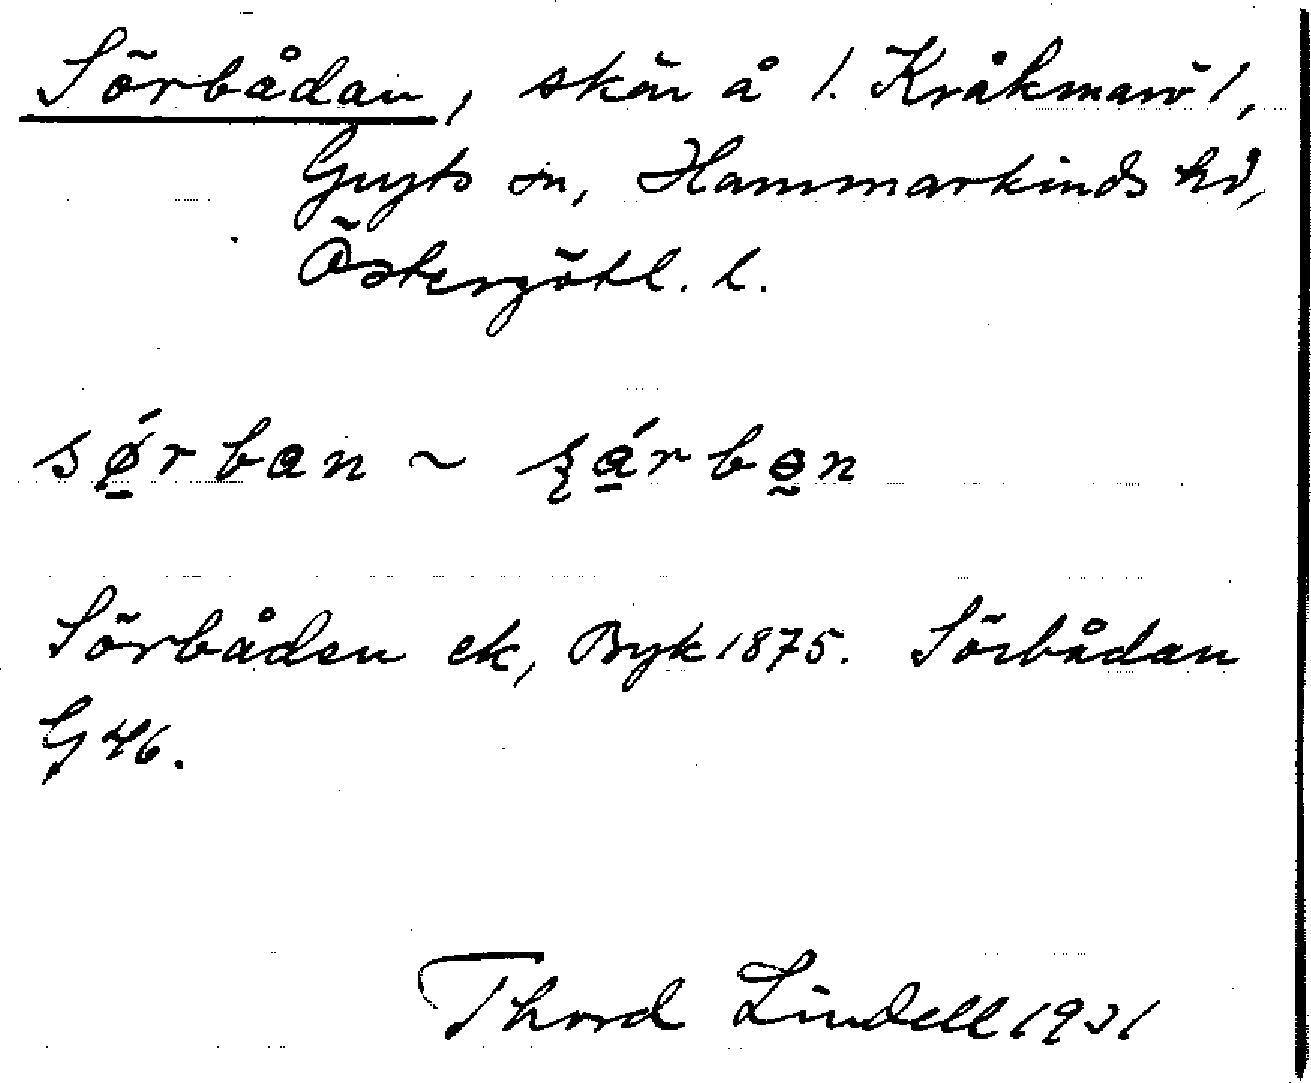 Sörbådan, skär å l. Kråkmarö l,
Gryts sn, Hammarkinds hd,
Östergötl. l.
sǿ̱rban ~ ʂá̱rbə̰n
Sörbåden ek, Byk 1875. Sörbådan
G 46.
Thord Lindell 1931